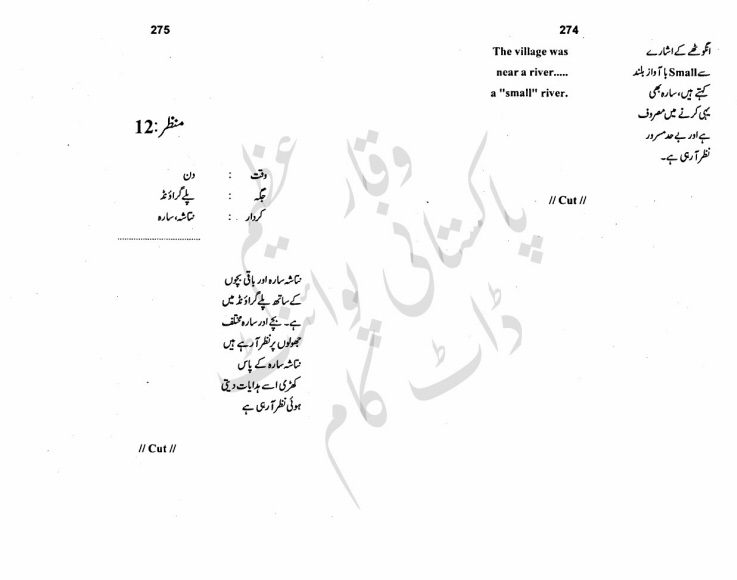 274
The village was
near a river.....
a "small" river.
انگوٹھے کے اشارے
سے Small با آواز بلند
کہتے ہیں، سارہ بھی
یہی کرنے میں مصروف
ہے اور بے حد مسرور
نظر آ رہی ہے۔
// Cut //
275
منظر :12
وقت : دن
جگہ : پلے گراؤنڈ
کردار : نتاشہ، سارہ
نتاشہ سارہ اور باقی بچوں
کے ساتھ پلے گراؤنڈ میں
ہے۔ بچے اور سارہ مختلف
جھولوں پر نظر آ رہے ہیں
نتاشہ سارہ کے پاس
کھڑی اسے ہدایات دیتی
ہوئی نظر آ رہی ہے
// Cut //
وقار عظیم
پاکستانی پوائنٹ
ڈاٹ کام